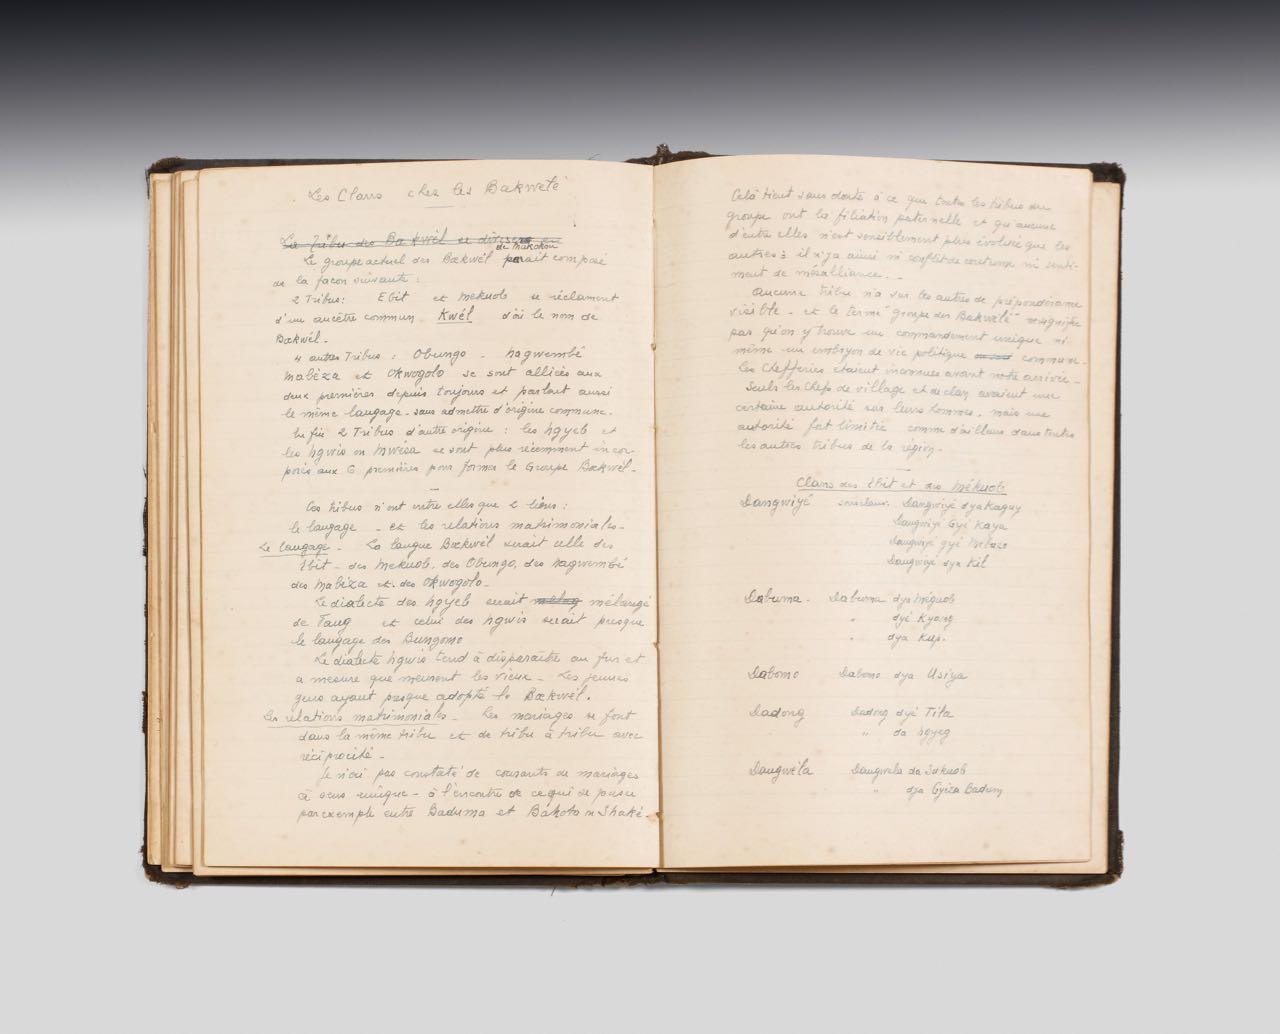 Les Clans chez les Bakwélé
La Tribu des Bœkwél se divise en
de Makokou
Le groupe actuel des Bœkwél parait composé
de la façon suivante :
2 Tribus : Ebit et Mekuob se réclament
d'un ancêtre commun Kwél d'où le nom de
Bœkwél -
4 autres Tribus : Obungo - Nagwembé
Mabéza et Okwogolo se sont alliées aux
deux premières depuis toujours et parlant aussi
le même langage - sans admettre d'origine commune.
Enfin 2 Tribus d'autre origine : les Ngyeb et
les Ngwis ou Mwésa se sont plus récemment incor-
porés aux 6 premières pour former le Groupe Bœkwél -
Ces tribus n'ont entre elles que 2 liens :
le langage - et les relations matrimoniales -
Le langage - La langue Bœkwél serait celle des
Ebit - des Mekuob, des Obungo, des Nagwembé
des Mabéza et des Okwogolo -
Le dialecte des Ngyeb serait mélangé
de Fang et celui des Ngwis serait presque
le langage des Bungomo
Le dialecte Ngwis tend à disparaître au fur et
a mesure que meurent les vieux - Les jeunes
gens ayant presque adopté le Bœkwél.
Les relations matrimoniales - Les mariages se font
dans la même tribu et de tribu à tribu avec
réciprocité -
Je n'ai pas constaté de courants de mariages
à sens unique - à l'encontre de ce qui se passe
par exemple entre Baduma et Bakota n Shaké -
Celà tient sans doute à ce que toutes les tribus du
groupe ont la filiation paternelle et qu'aucune
d'entre elles n'est sensiblement plus évoluée que les
autres : il n'y a ainsi ni conflit de coutume ni senti-
ment de mésalliance. -
Aucune tribu n'a sur les autres de prépondérance
visible - et le terme "groupe des Bakwélé" ne signifie
pas qu'on y trouve un commandement unique ni
même un embryon de vie politique commune -
Les Chefferies étaient inconnues avant notre arrivée -
Seuls les Chefs de village et de clan avaient une
certaine autorité sur leurs hommes, mais une
autorité fort limitée comme d'ailleurs dans toutes
les autres tribus de la région -
Clans des Ebit et des Mékuob
Dangwiyé sous clans : Dangwiyé dya Kaguy
Dangwiyé Gyé Kaya
Dangwiyé gyé
Dangwiyé dya Kil
Dabuma - Dabuma dya Méguob
" dyé Kyang
" dya Kup.
Dabomo Dabomo dya Usiya
Dadong Dadong dyé Tila
" da Ngyeg
Dangwéla Dangwela da Sékuob
" dya Gyéza Badum